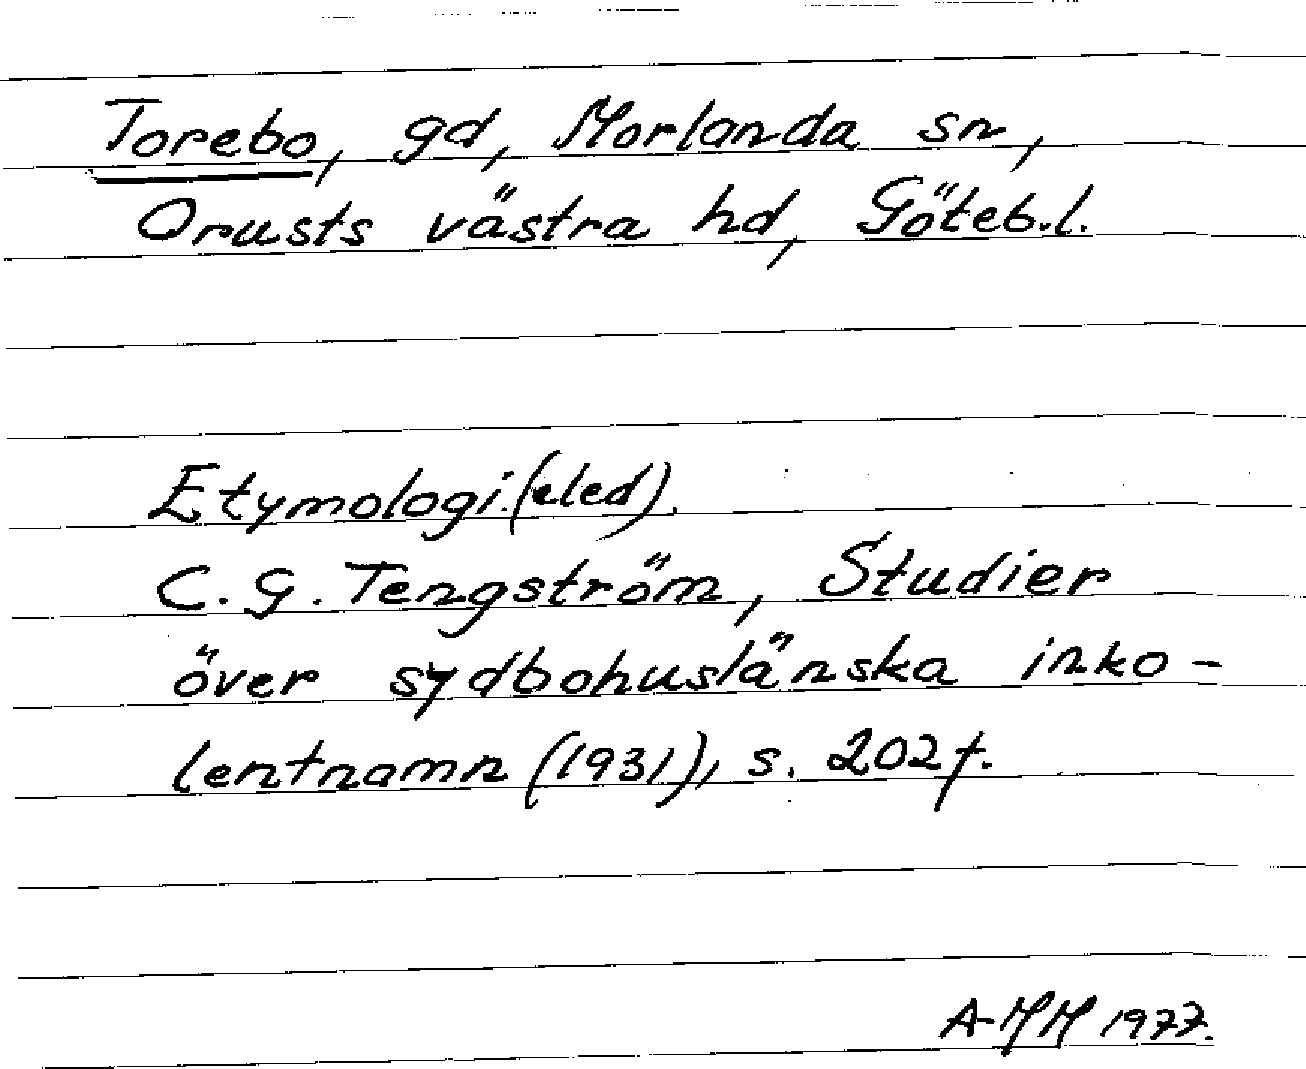 Torebo, gd, Morlanda sn,
Orusts västra hd, Göteb.l.
Etymologi.(eled).
C.G. Tengström, Studier
över sydbohuslänska inko-
lentnamn (1931), s. 202f.
A-MM 1977.